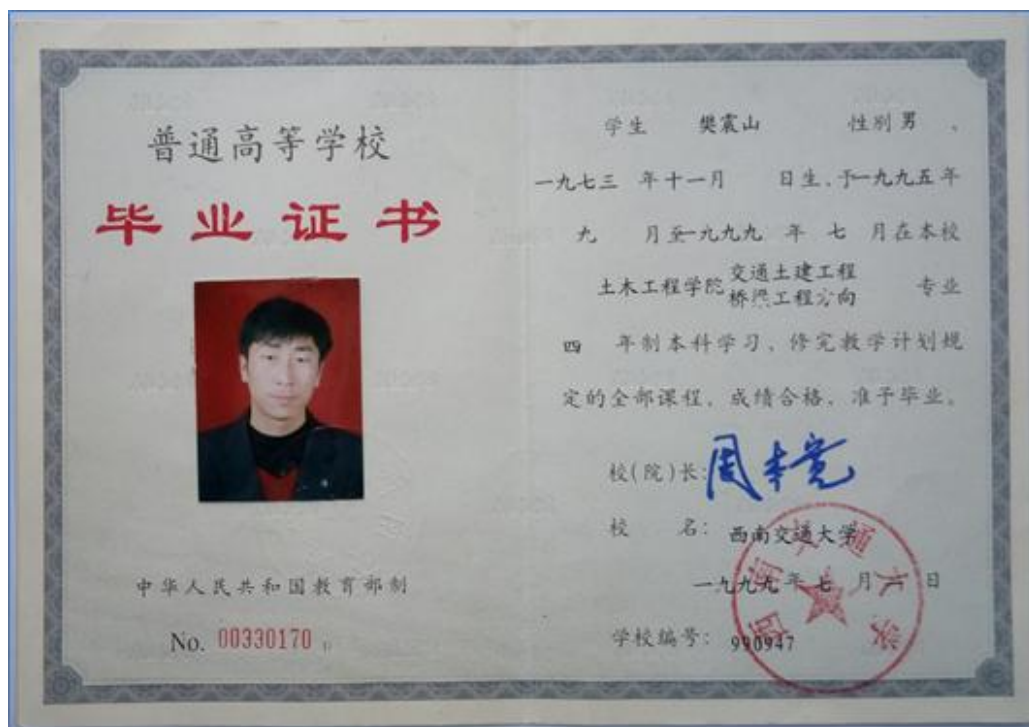 普通高等学校
毕业证书
中华人民共和国教育部制
No. 00330170
学生 樊震山 性别 男 、
一九七三 年 十一月 日生、于一九九五年
九 月至一九九九 年 七 月在本校
土木工程学院 交通土建工程
桥梁工程方向 专业
四 年制本科学习、修完教学计划规
定的全部课程、成绩合格、准予毕业。
校(院)长: 周本宽
校 名: 西南交通大学
一九九九年 七 月 日
学校编号: 990947
西南交通大学